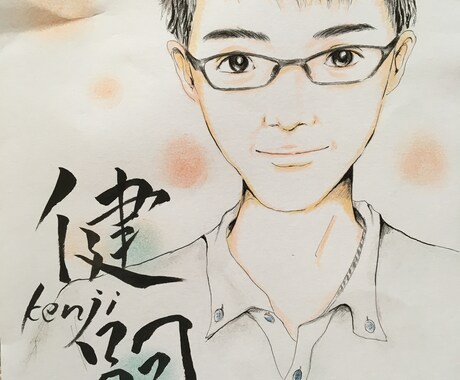 健
kenji
嗣